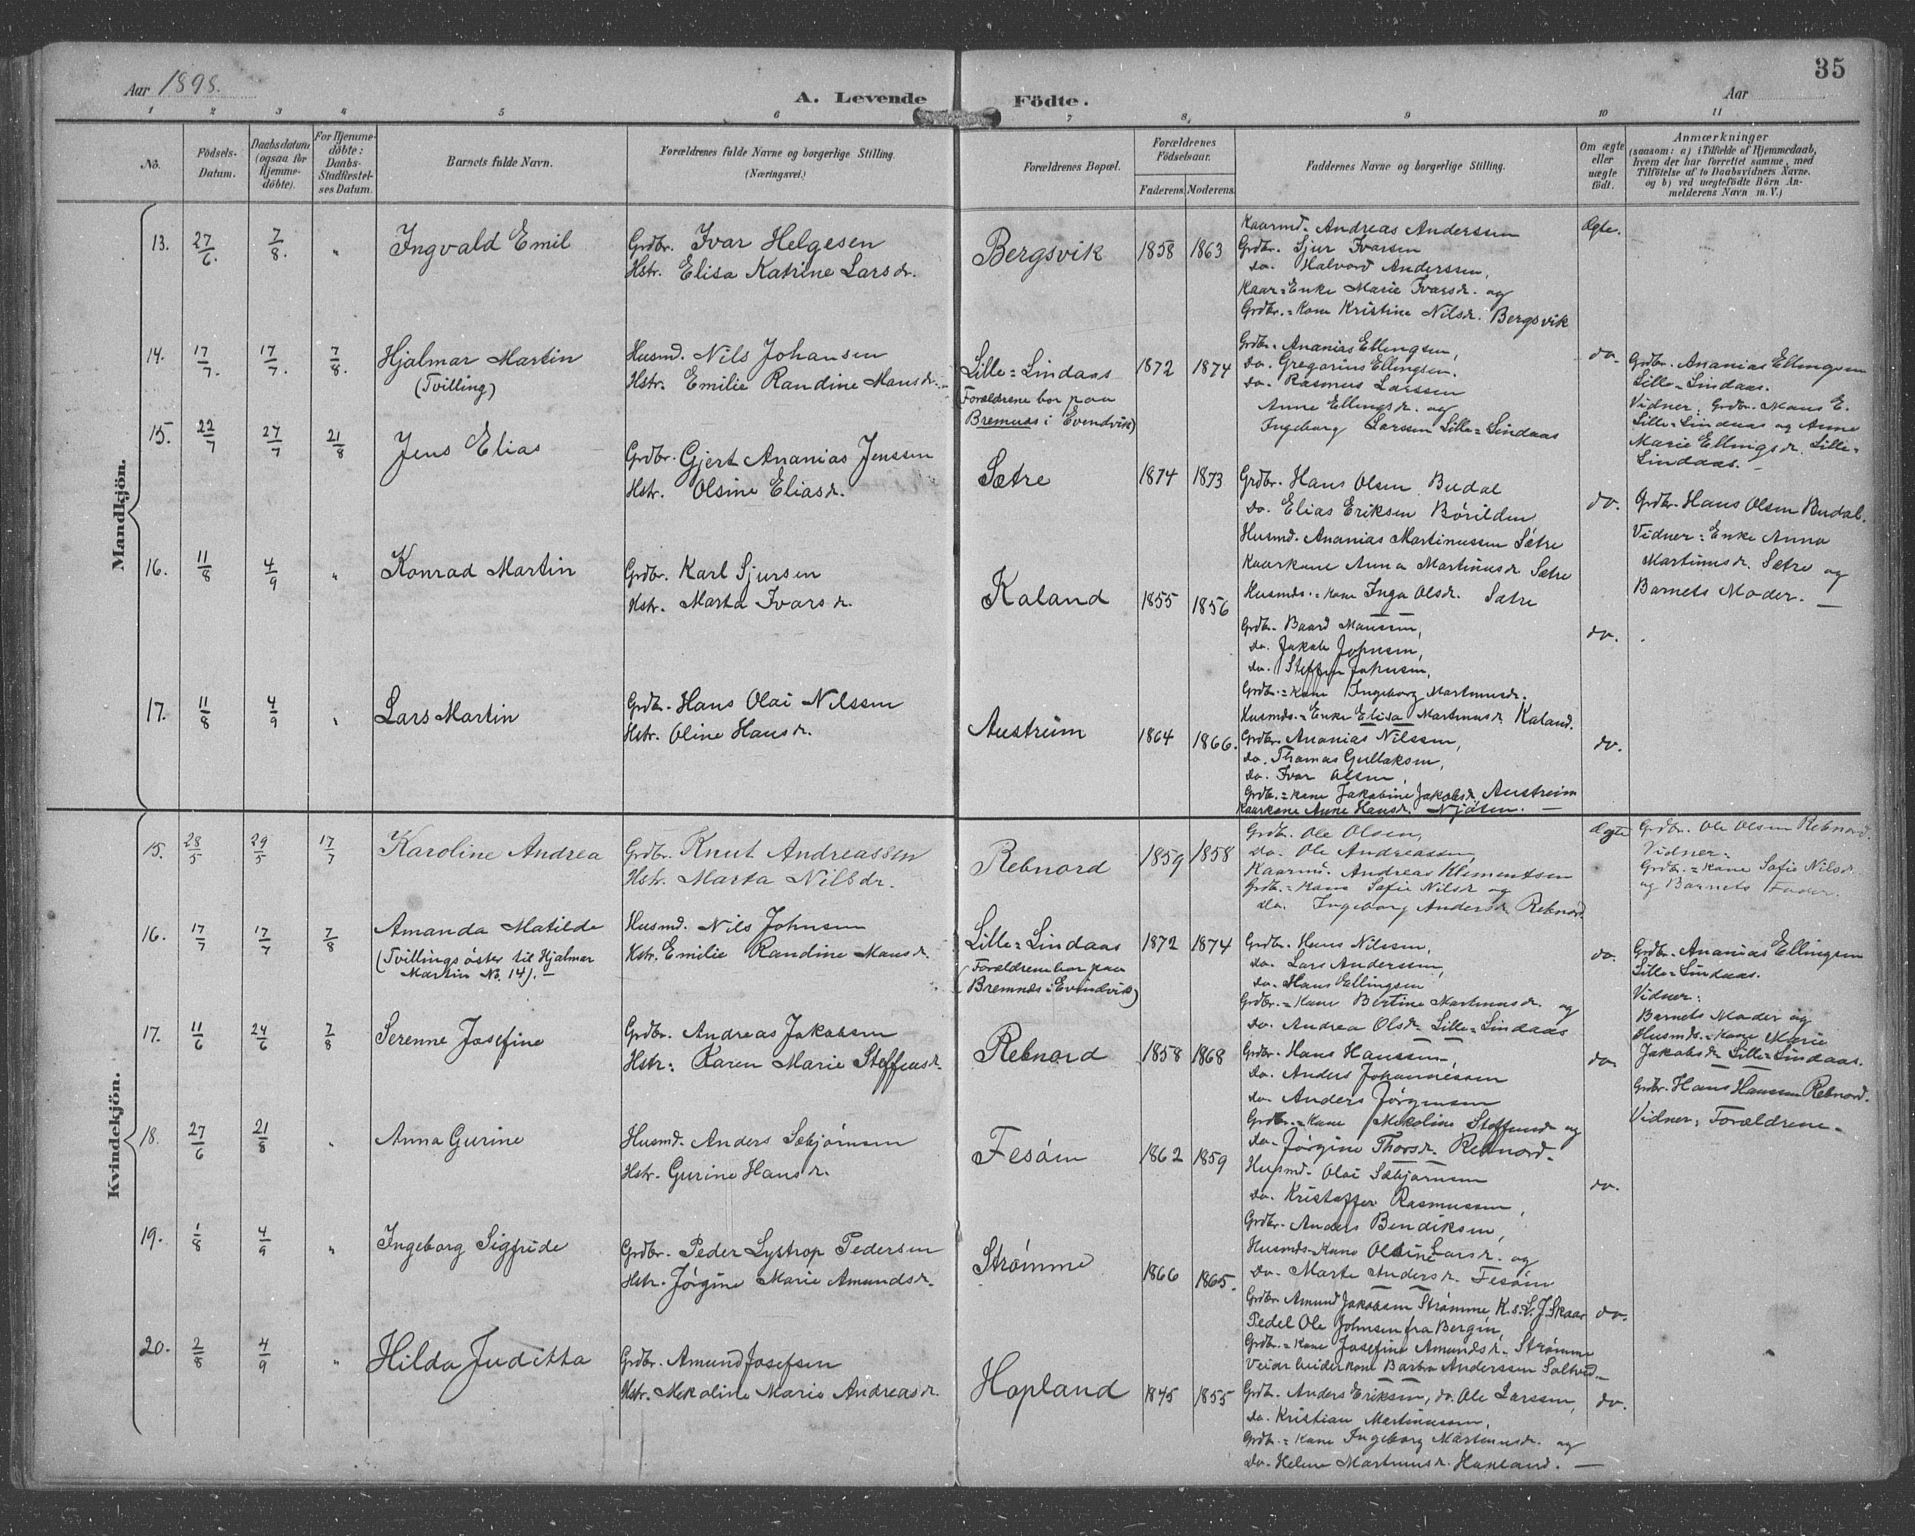 35
Aar 1898.
A. Levende Födte.
Aar
1 2 3 4 5 6 7 8 9 10 11
No.
Födsels-
Datum.
Daabsdatum
(ogsaa for
Hjemme-
døbte).
For Hjemme-
döbte:
Daabs-
Stadfæstel-
ses Datum.
Barnets fulde Navn.
Forældrenes fulde Navne og borgerlige Stilling.
(Næringsvei.)
Forældrenes Bopæl.
Forældrenes
Födselsaar.
Faderens. Moderens.
Faddernes Navne og borgerlige Stilling.
Om ægte
eller
uægte
født.
Anmærkninger
(saasom: a) i Tilfælde af Hjemmedaab,
hvem der har forrettet samme, med
Tilføielse af to Daabsvidners Navne.
og b) ved uegtefödte Börn An-
melderens Navn m. V.)
Mandkjön.
13. 27/6. 7/8. " Ingvald Emil
Grdbr. Ivar Helgesen
Hstr. Elisa Katrine Larsdr.
Bergsvik 1858 1863
Kaarmd. Andreas Anderssen
Grdbr. Sjur Ivarsen
do. Halvord Anderssen,
Kaar=Enke Marie Ivarsdr. og
Grdbr.=Kone Kristine Nilsdr. Bergsvik
Ægte.
14. 17/7. 17/7. 7/8. Hjalmar Martin
(Tvilling)
Husmd. Nils Johansen
Hstr. Emilie Randine Mansdr.
Lille=Lindaas
(Forældrene bor paa
Bremnes i Evendvik)
1872 1874
Grdbr. Ananias Ellingsen,
do. Gregarius Ellingsen.
do. Rasmus Larssen
Anne Ellingsdr. og
Ingeborg Larssen Lille=Lindaas
do.
Grdbr. Ananias Ellingsen
Lille=Lindaas.
Vidner: Grdbr. Mans E.
Lille-Lindaas og Anne
Marie Ellingsdr. Lille-
Lindaas. —
15. 22/7 27/7 21/8 Jens Elias
Grdbr. Gjert Ananias Jenssen
Hstr. Olsine Eliasdr.
Sætre 1874 1873
Grdbr. Hans Olsen Budal
do. Elias Eriksen Börilden
Husmd. Ananias Martinussen Sætre
Kaarkone Anna Martinusdr Sætre
Husmds.=Kone Inga Olsdr. Sætre
do.
Grdbr. Hans Olsen Budal.
Vidner: Enke Anna
Martinusdr. Sætre og
Barnets Moder. —
16. 11/8 4/9 " Konrad Martin
Grdbr. Karl Sjursen
Hstr. Marta Ivarsdr.
Kaland 1855 1856
Grdbr. Baard Monssen,
do. Jakob Johnsen,
do. Steffen Johnsen,
Grdbr.=Kone Ingeborg Martinusdr.
Husmds.=Enke Elisa Martinusdr Kaland.
do.
17. 11/8 4/9 " Lars Martin
Grdbr. Hans Olai Nilssen
Hstr. Oline Hansdr.
Austreim 1864 1866.
Grdbr. Ananias Nilssen,
do. Thomas Gullaksen,
do. Ivar Olsen,
Grdbr.=Kone Jakobine Jakobsdr Austreim
Kaarkone Anne Hansdr Njøten. —
do.
Kvindekjön.
15. 28/5 29/5 17/7 Karoline Andrea
Grdbr. Knut Andreassen
Hstr. Marta Nilsdr.
Rebnord 1859 1858
Grdbr. Ole Olsen,
do. Ole Andreassen
Kaarmd. Andreas Klementsen
Grdbr.=Kone Sofie Nilsdr og
do. Ingeborg Andersdr Rebnord
Ægte
Grdbr. Ole Olsen Rebnord.
Vidner:
Grdbr.=Kone Sofie Nilsdr.
og Barnets Fader.
16. 17/7 17/7 7/8 Amanda Matilde
(Tvillingsöster til Hjalmar
Martin No. 14). —
Husmd. Nils Johnsen
Hstr. Emilie Randine Mansdr.
Lille=Lindaas
(Forældrene bor paa
Bremnes i Evindvik)
1872 1874
Grdbr. Hans Nilssen,
do. Lars Anderssen,
do. Hans Ellingsen
Grdbr.=Kone Bertine Martinusdr. og
do. Andrea Olsdr Lille=Lindaas
do.
Grdbr. Ananias Ellingsen
Lille=Lindaas.
Vidner:
Barnets Moder og
Husmds.=Kone Marie
Jakobsdr Lille=Lindaas.
17. 11/6 24/6 7/8 Serenne Josefine
Grdbr. Andreas Jakobsen
Hstr: Karen Marie Steffensdr.
Rebnord 1858 1868
Grdbr. Hans Hanssen
do. Anders Johannessen
do. Anders Jörgensen
Grdbr.=Kone Mikoline Steffensdr og
do. Jörgine Thorsdr. Rebnord.
do.
Grdbr. Hans Hanssen Rebnord.
Vidner: Forældrene.
18. 27/6 21/8 " Anna Gurine
Husmd. Anders Sebjörnsen
Hstr. Gurine Hansdr.
Fesöin 1862 1859
Husmd. Olai Sebjørnsen
do. Kristoffer Rasmussen,
Grdbr. Anders Bendiksen,
Husmds-Kone Oldine Larsdr. og
do. Marte Andersdr. Fesöin
do.
19. 1/8 4/9 " Ingeborg Sigfride
Grdbr. Peder Lystrop Pedersen
Hstr. Jörgine Marie Amundsdr.
Strømme 1866 1865.
Grdbr. Amund Jakobsen Strømme K.s.L.J. Skaar
Pedel Ole Johnsen fra Bergin,
Grdbr.=Kone Josefine Amundsdr. Strømme
Barbra Anderssen
do.
20. 2/8 4/9 " Hilda Juditta
Grdbr. Amund Josefsen
Hstr. Mekoline Marie Andreasdr.
Hopland 1845 1855
Grdbr. Anders Eriksen, do. Ole Larssen,
do. Kristian Martinussen,
Grdbr.=Kone Ingeborg Martinusdr. og
do. Helene Martinusdr. Hopland. —
do.